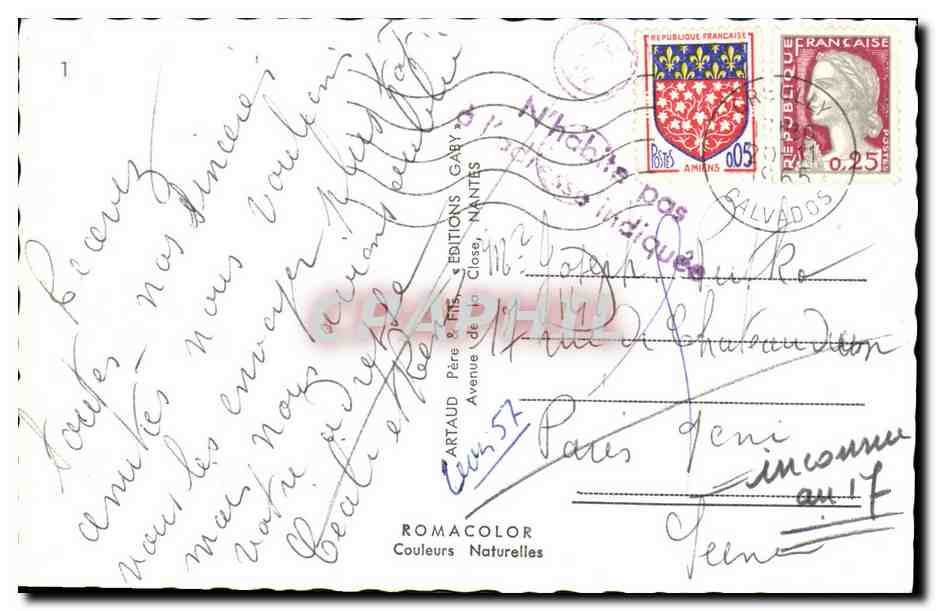 1
Recevez
toutes nos sincères
amitiés - nous voulions
vous les envoyer plus tôt
mais nous avions oublié
votre adresse
Cécile et René
ARTAUD Père & Fils, « EDITIONS GABY »
Avenue de la Close, NANTES
ROMACOLOR
Couleurs Naturelles
REPUBLIQUE FRANÇAISE
POSTES 0,05
AMIENS
REPUBLIQUE FRANÇAISE
POSTES
0,25
CALVADOS
N'habite pas
à l'adresse indiquée
Joseph
17 rue de Chateaudun
Paris
Seine
inconnu
au 17
CRAPHU